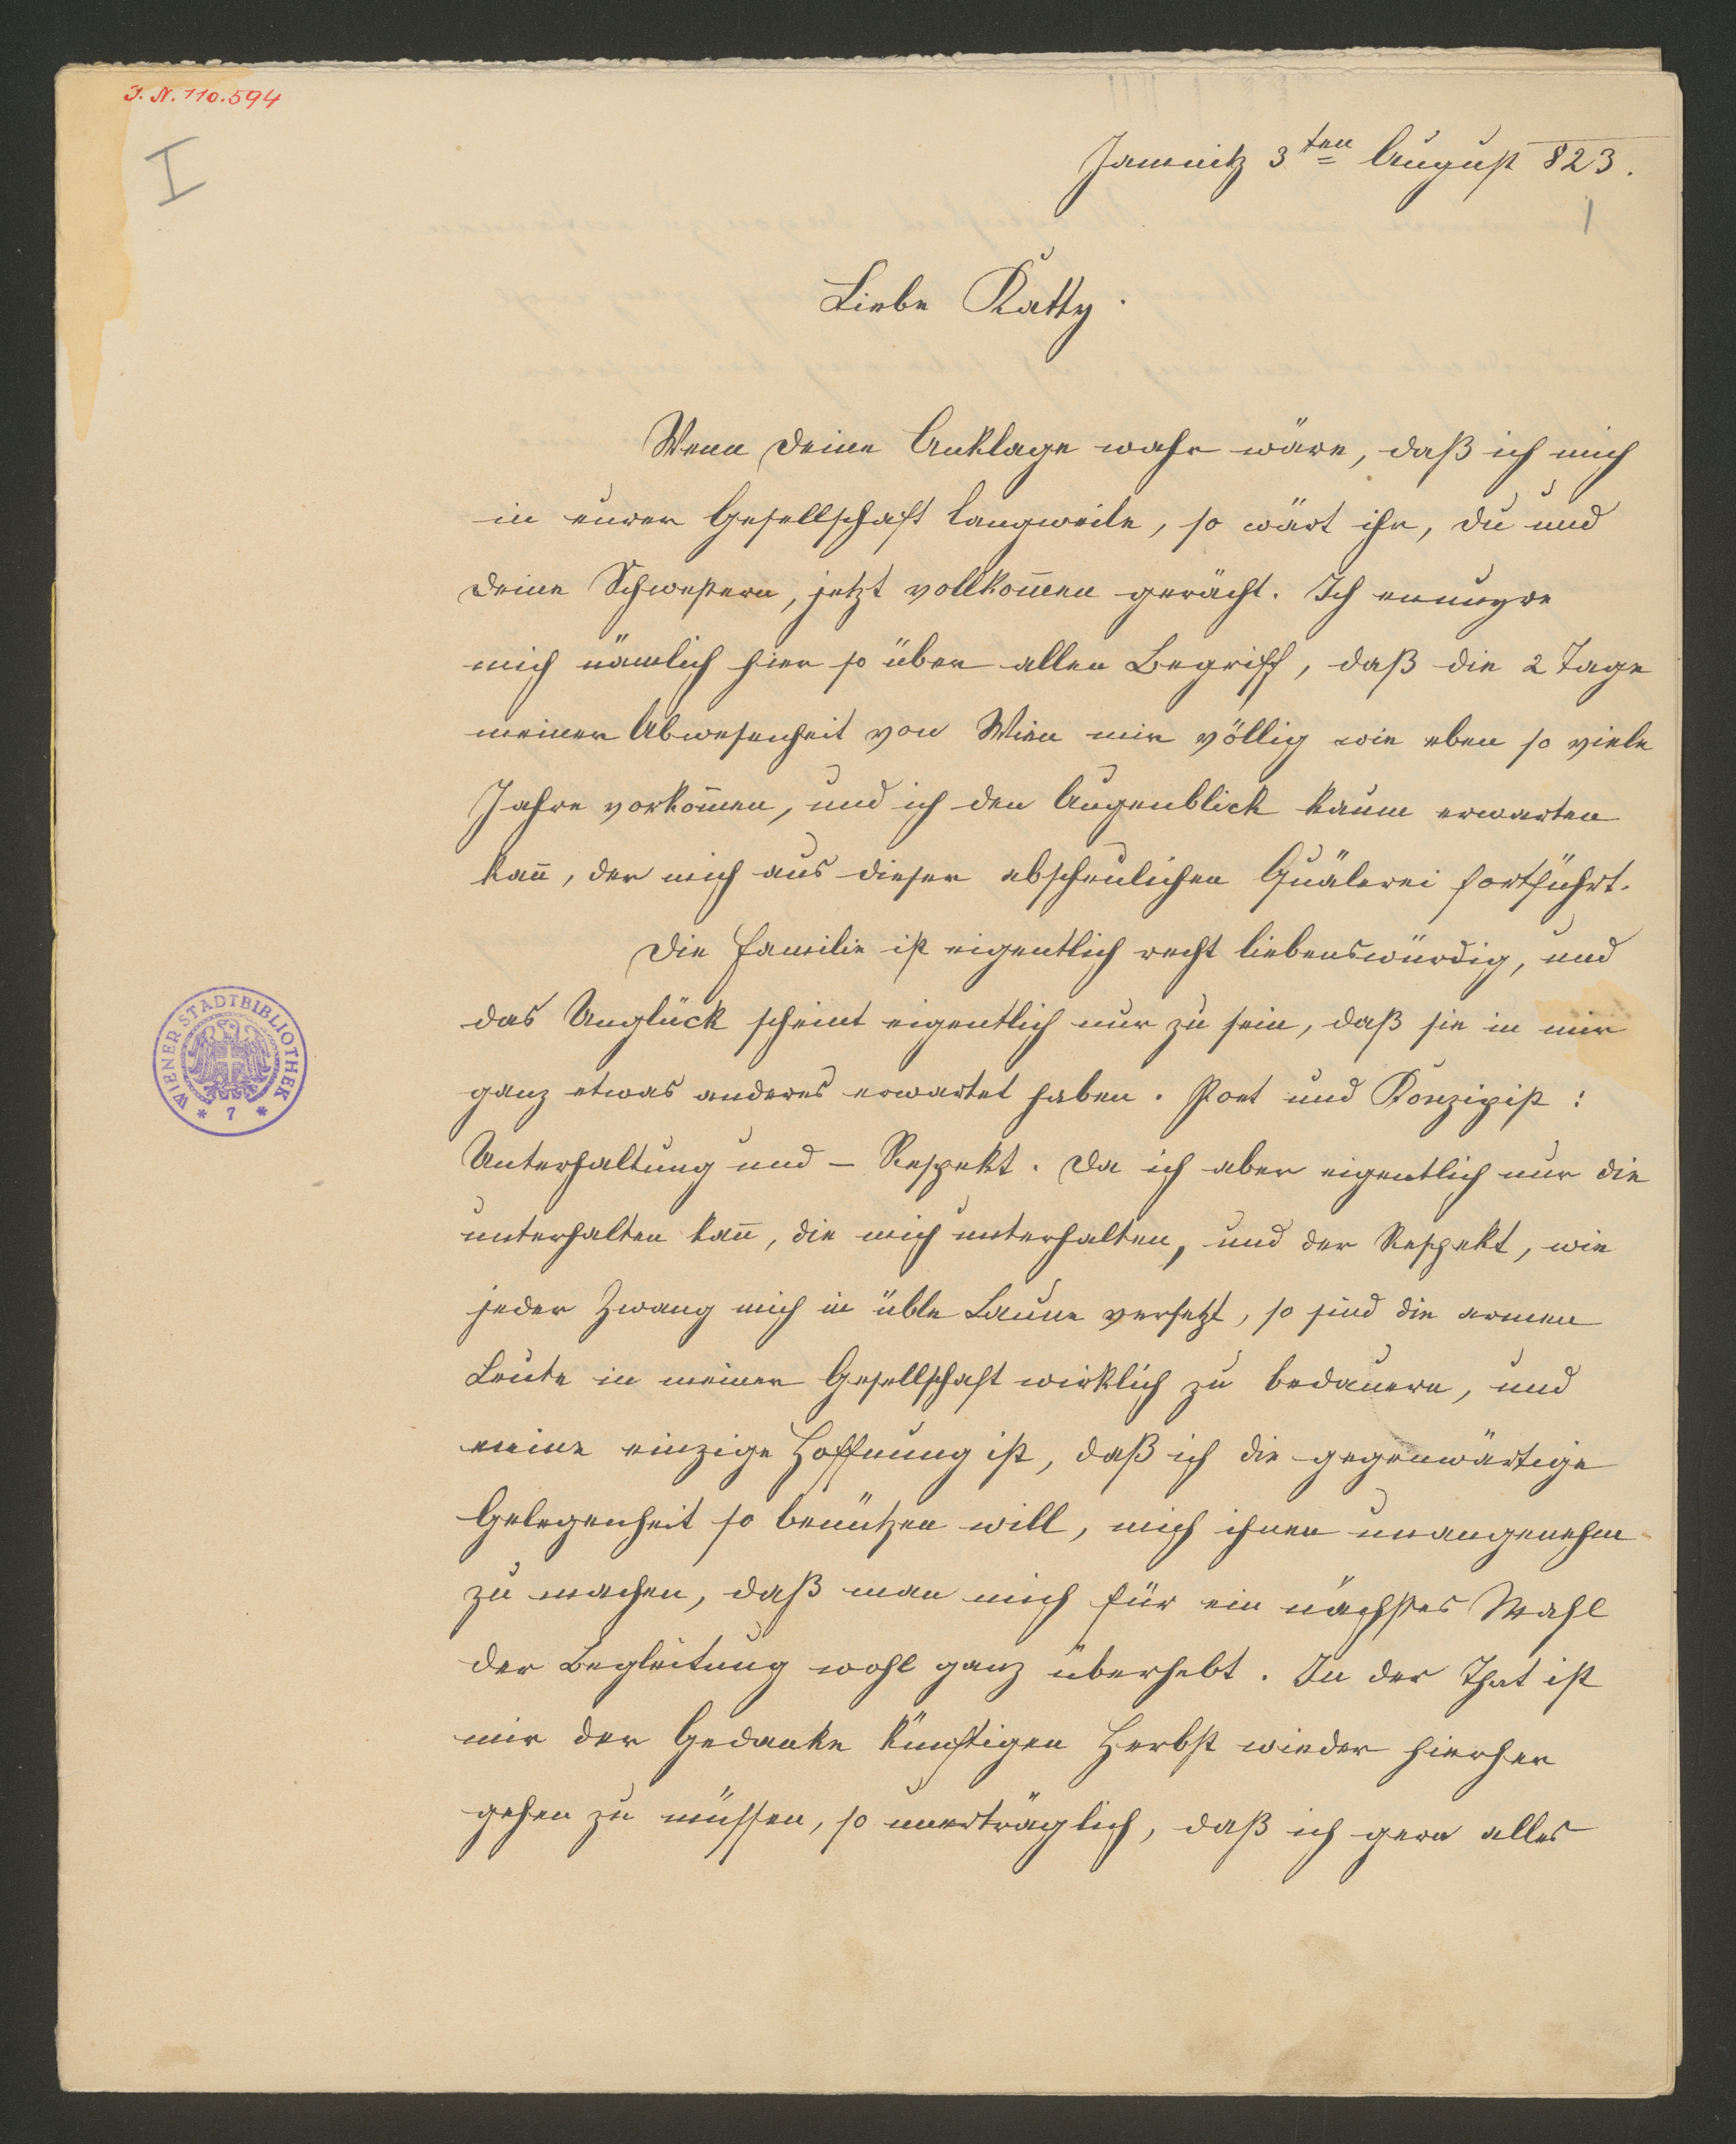 I. N. 110.594
I
Jamnitz 3ten August 823.
1
Liebe Katty.
Wenn Deine Anklage wahr wäre, daß ich mich
in eurer Gesellschaft langweile, so wärt ihr, du und
deine Schwestern, jetzt vollkom̅en gerächt. Ich ennuyre
mich nämlich hier so über allen Begriff, daß die 2 Tage
meiner Abwesenheit von Wien mir völlig wie eben so viele
Jahre vorkom̅en, und ich den Augenblick kaum erwarten
kan̅, der mich aus dieser abscheulichen Quälerei fortführt.
Die Familie ist eigentlich recht liebenswürdig, und
das Unglück scheint eigentlich nur zu sein, daß sie in mir
ganz etwas anderes erwartet haben. Poet und Konzipist:
Unterhaltung und – Respekt. Da ich aber eigentlich nur die
unterhalten kan̅, die mich unterhalten, und der Respekt, wie
jeder Zwang mich in üble Laune versetzt, so sind die armen
Leute in meiner Gesellschaft wirklich zu bedauern, und
meine einzige Hoffnung ist, daß ich die gegenwärtige
Gelegenheit so benützen will, mich ihnen unangenehm
zu machen, daß man mich für ein nächstes Mahl
der Begleitung wohl ganz überhebt. In der That ist
mir der Gedanke künftigen Herbst wieder hierher
gehen zu müssen, so unerträglich, daß ich gern alles
WIENER STADTBIBLIOTHEK
* 7 *